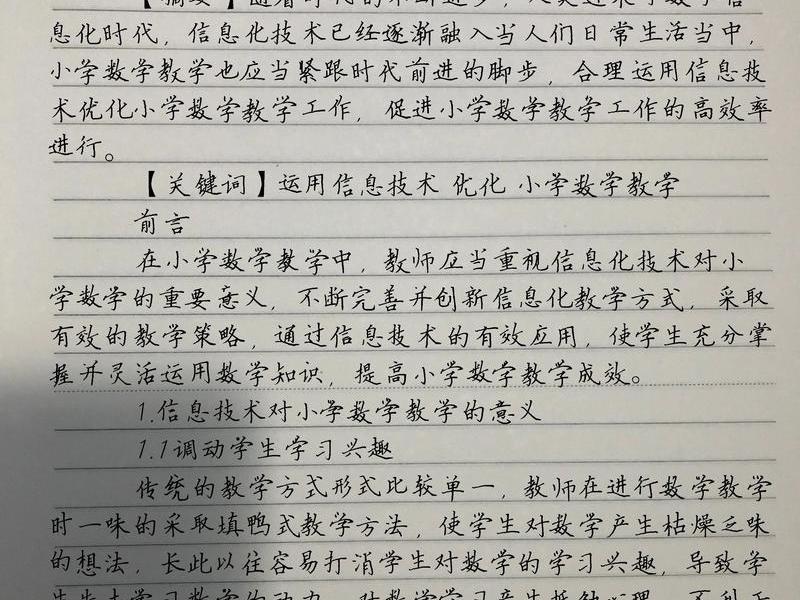 【摘要】随着时代的不断进步，人类迎来了数字信
息化时代，信息化技术已经逐渐融入当人们日常生活当中，
小学数学教学也应当紧跟时代前进的脚步，合理运用信息技
术优化小学数学教学工作，促进小学数学教学工作的高效率
进行。
【关键词】运用信息技术 优化 小学数学教学
前言
在小学数学教学中，教师应当重视信息化技术对小
学数学的重要意义，不断完善并创新信息化教学方式，采取
有效的教学策略，通过信息技术的有效应用，使学生充分掌
握并灵活运用数学知识，提高小学数学教学成效。
1.信息技术对小学数学教学的意义
1.1调动学生学习兴趣
传统的教学方式形式比较单一，教师在进行数学教学
时一味的采取填鸭式教学方法，使学生对数学产生枯燥乏味
的想法，长此以往容易打消学生对数学的学习兴趣，导致学
生失去学习数学的动力，对数学学习产生抵触心理，不利于